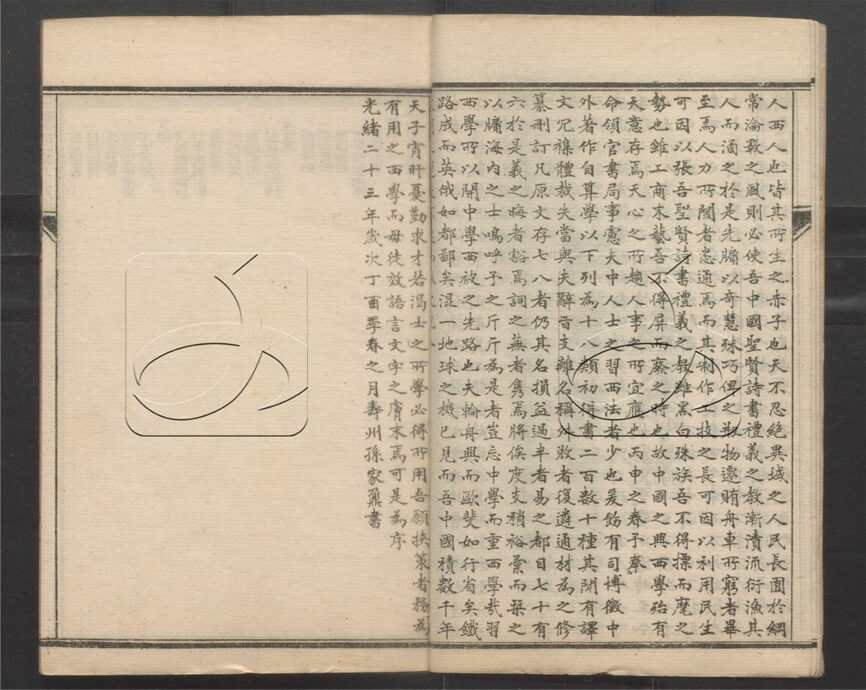 人西人也皆其所生之赤子也天不忍絕異域之人民長圄於網
常淪斁之風則必使吾中國聖賢詩書禮義之教漸漬流衍漁其
人而涵之於是先牖以奇慧殊巧俾之製物遷賄舟車所窮者畢
至焉人力所閡者悉通焉而其制作工技之長可因以利用民生
可因以張吾聖賢詩書禮義之教雖黑白殊族吾不得摽而麾之
勢也雖工商末藝吾不得屏而廢之時也故中國之興西學殆有
天意存焉天心之所趨人事之所宜應也丙申之春予奉
命領官書局事慮夫中人士之習西法者少也爰飭有司博徵中
外著作自算學以下列為十八類初得書二百數十種其間有譯
文冗襍體裁失當與夫辭旨支離名稱舛敓者復遴通材為之修
纂刪訂凡原文存七八者仍其名損益過半者易之都目七十有
六於是義之晦者豁焉詞之蕪者雋焉將俟度支稍裕彙而棃之
以牖海內之士嗚呼予之斤斤為是者豈忘中學而重西學哉習
西學所以開中學西放之先路也夫輪舟興而歐斐如行省矣鐵
路成而英俄如都鄙矣混一地球之機已見而吾中國積數千年
天子宵旰憂勤求才若渴士之所學必得所用吾願挾策者務為
有用之西學而毋徒效語言文字之膚末焉可是為序
光緒二十三年歲次丁酉季春之月壽州孫家鼐書